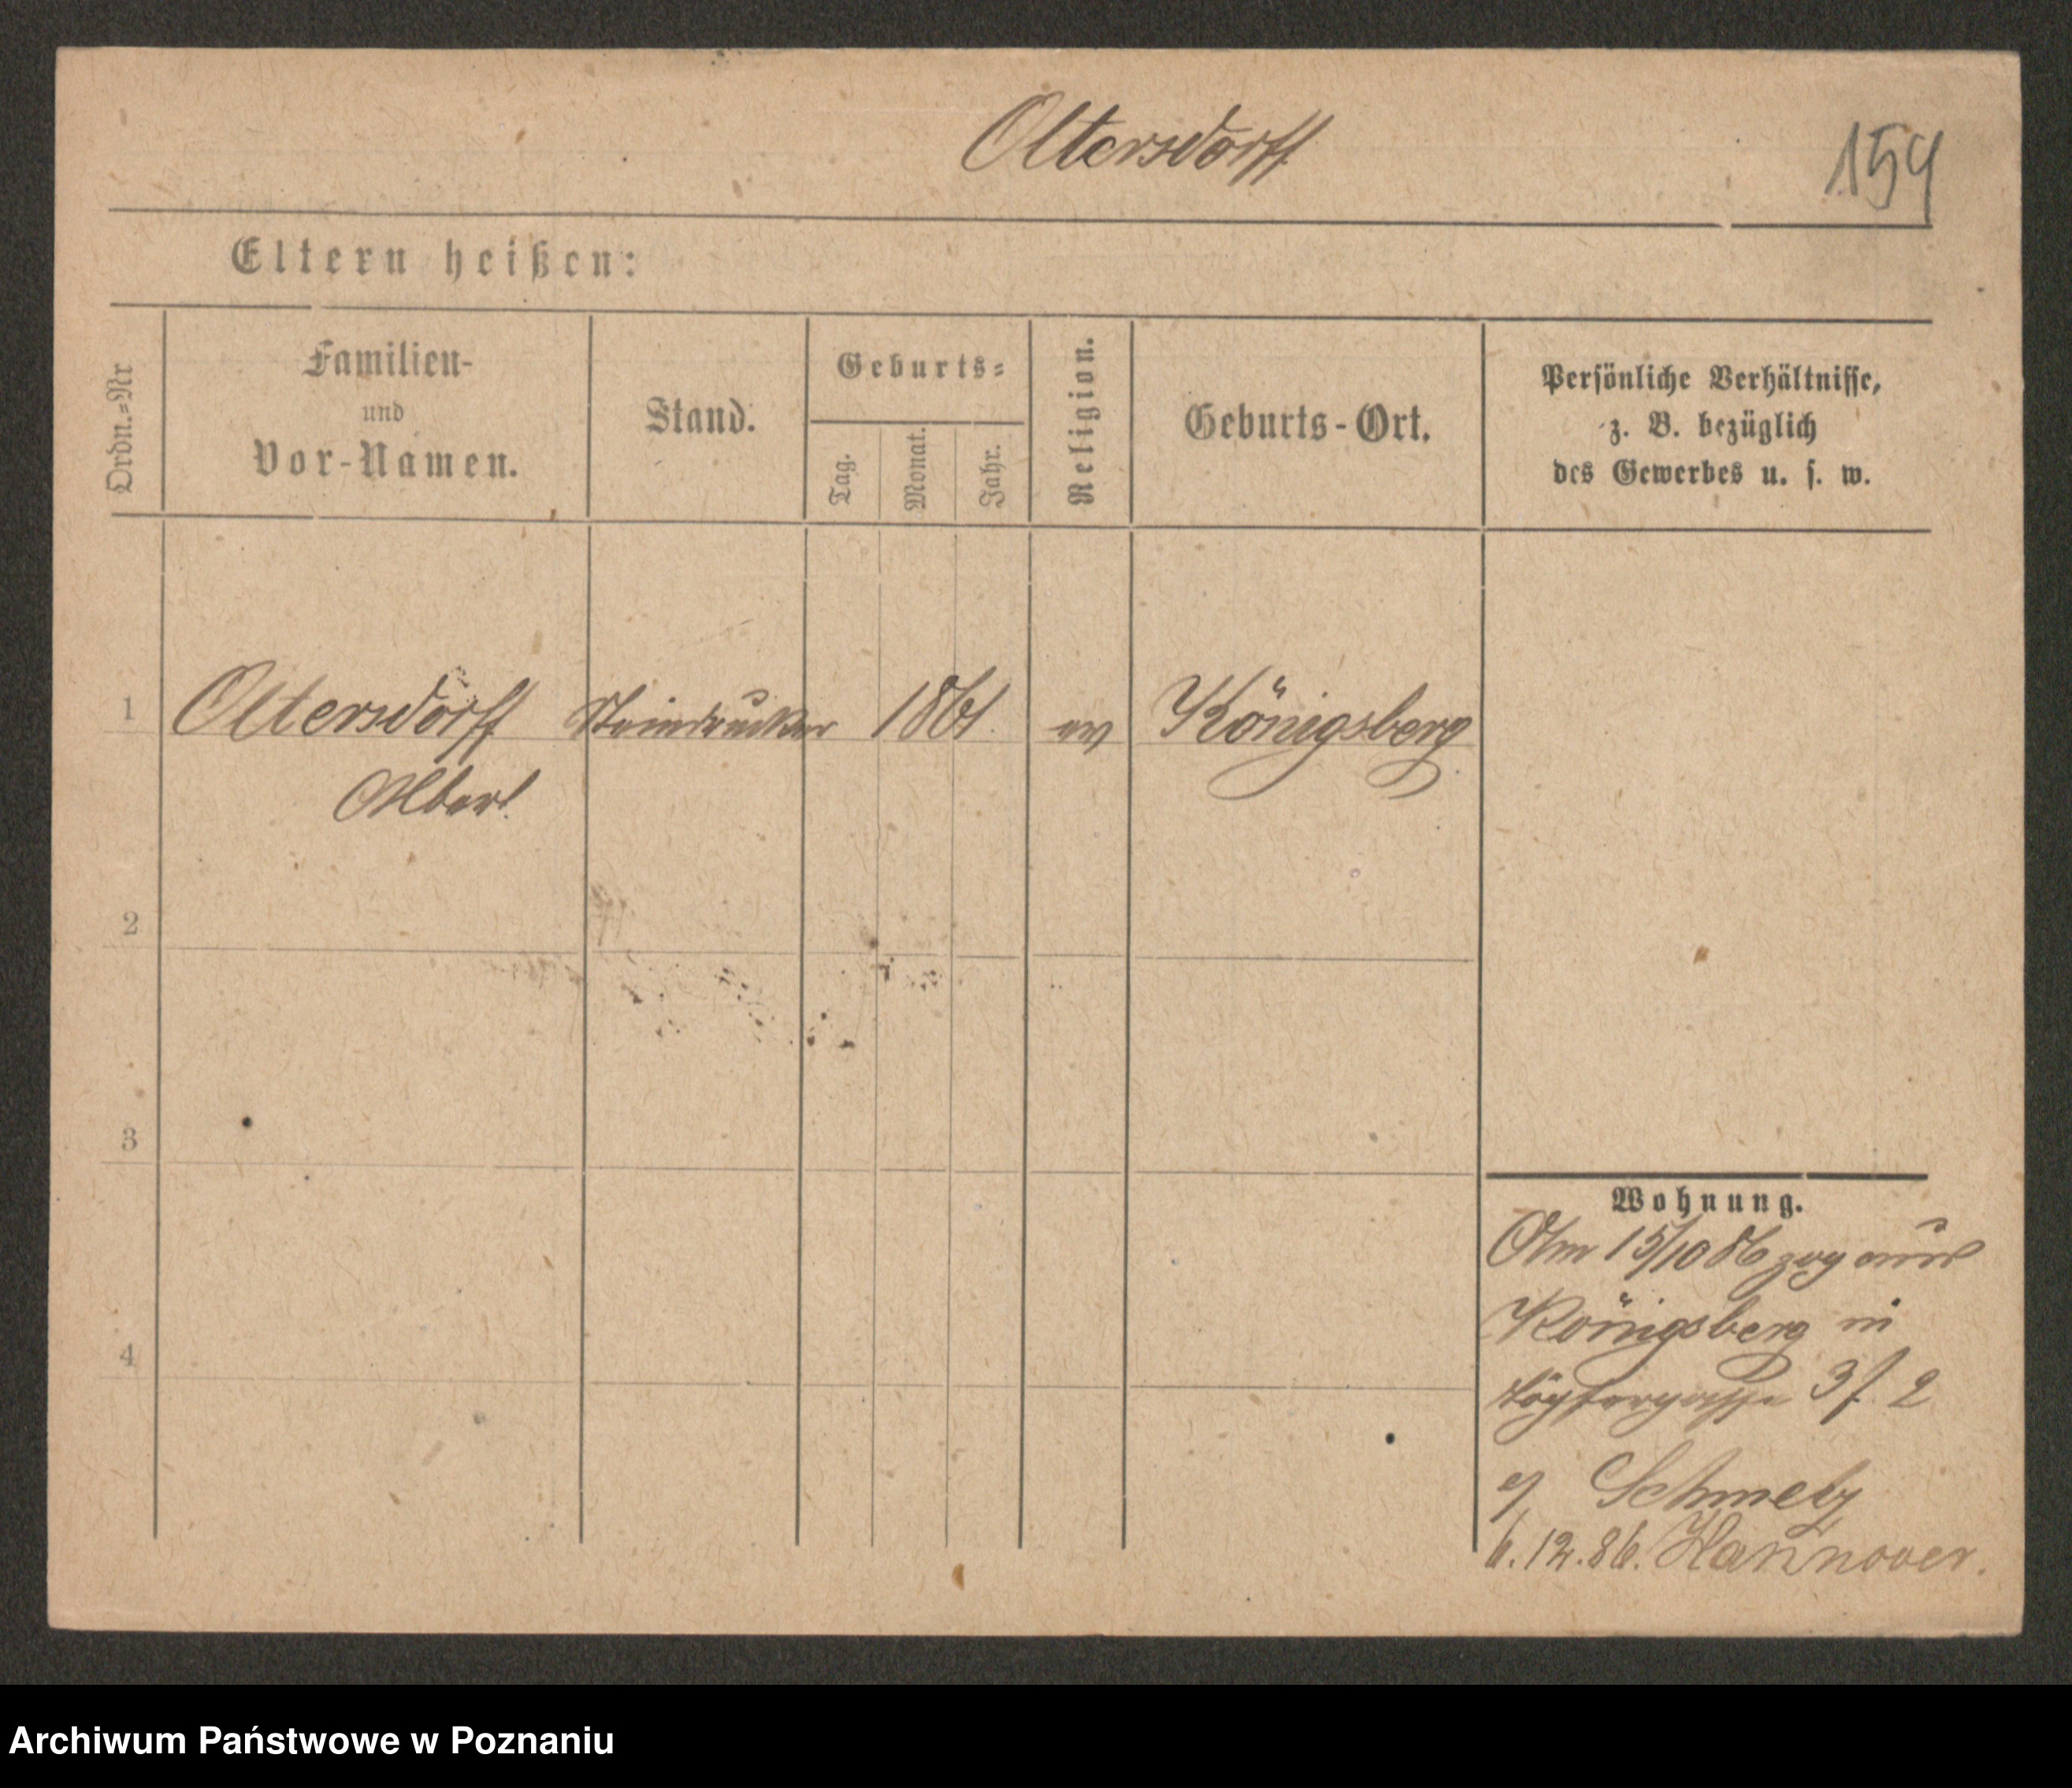 Oltersdorff
159
Eltern heißen:
Ordn.=Nr
Familien-
und
Vor-Namen.
Stand.
Geburts=
Tag.
Monat.
Jahr.
Religion.
Geburts-Ort.
Persönliche Verhältnisse,
z. B. bezüglich
des Gewerbes u. s. w.
1 Oltersdorff Steindrucker 1861 ev Königsberg
Albert
2
3
4
Wohnung.
Am 15/10 86 zog aus
Königsberg in
Töpfergasse 3 f. 2
Schmelz
6.12.86. Hannover.
Archiwum Państwowe w Poznaniu